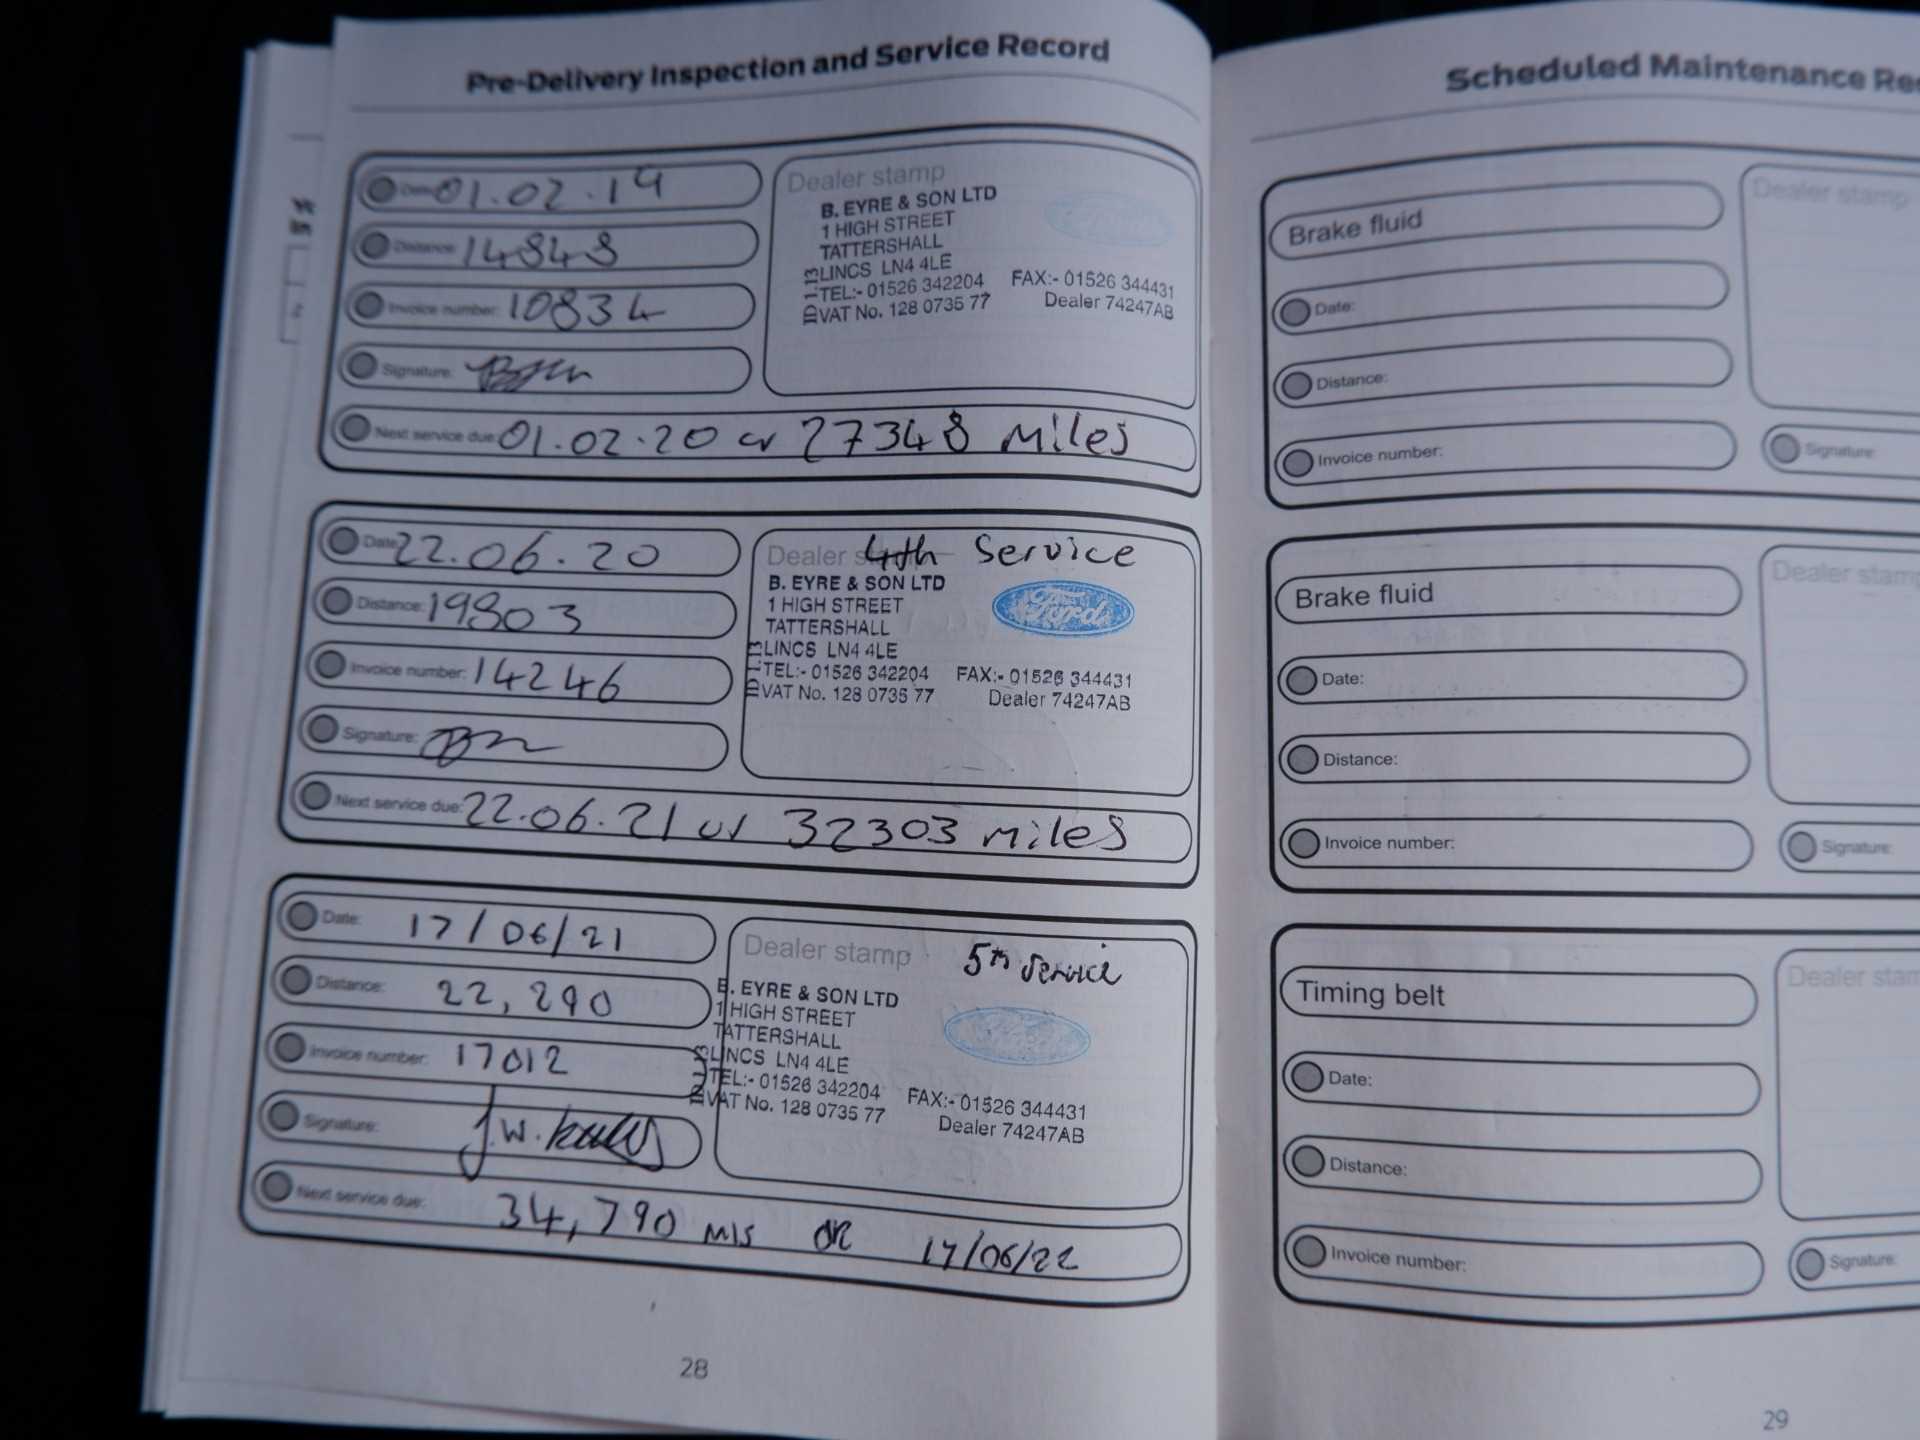 Pre-Delivery Inspection and Service Record
Date: 01.02.19
Distance: 14848
Invoice number: 10834
Signature:
Next service due: 01.02.20 or 27348 miles
Dealer stamp
B. EYRE & SON LTD
1 HIGH STREET
TATTERSHALL
LINCS LN4 4LE
TEL:- 01526 342204 FAX:- 01526 344431
VAT No. 128 0735 77 Dealer 74247AB
Date: 22.06.20
Distance: 19803
Invoice number: 14246
Signature:
Next service due: 22.06.21 or 32303 miles
Dealer stamp 4th Service
B. EYRE & SON LTD
Ford
1 HIGH STREET
TATTERSHALL
LINCS LN4 4LE
TEL:- 01526 342204 FAX:- 01526 344431
VAT No. 128 0735 77 Dealer 74247AB
Date: 17/06/21
Distance: 22,290
Invoice number: 17012
Signature: J.W.
Next service due: 34,790 MLS OR 17/06/22
Dealer stamp 5th Service
B. EYRE & SON LTD
Ford
1 HIGH STREET
TATTERSHALL
LINCS LN4 4LE
TEL:- 01526 342204 FAX:- 01526 344431
VAT No. 128 0735 77 Dealer 74247AB
28
Scheduled Maintenance
Brake fluid
Date:
Distance:
Invoice number:
Dealer stamp
Signature:
Brake fluid
Date:
Distance:
Invoice number:
Dealer stamp
Signature:
Timing belt
Date:
Distance:
Invoice number:
Dealer
Signature:
29